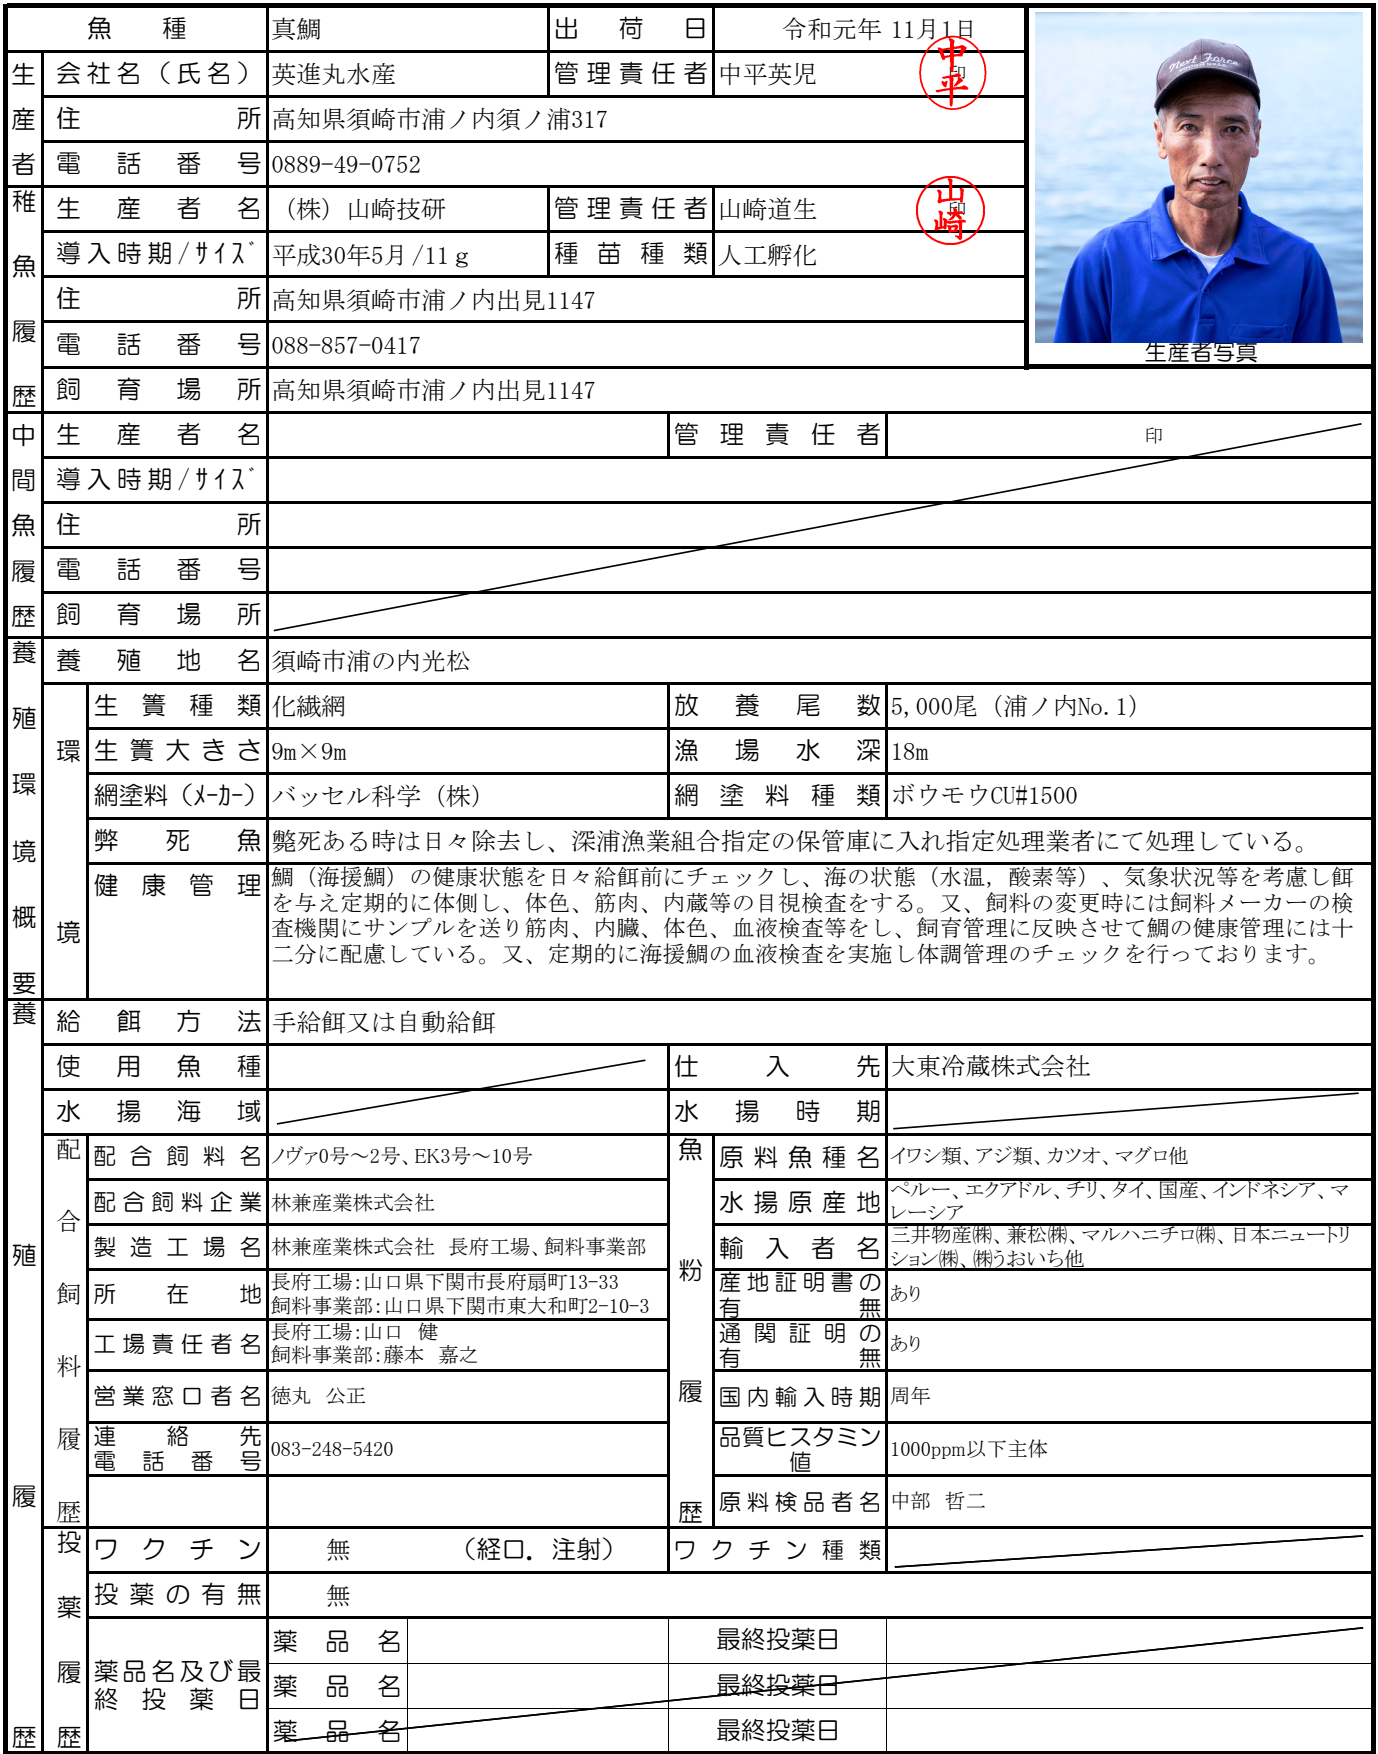 魚種 真鯛 出荷日 令和元年 11月1日
生産者
会社名（氏名） 英進丸水産 管理責任者 中平英児 印 中平
住所 高知県須崎市浦ノ内須ノ浦317
電話番号 0889-49-0752
稚魚履歴
生産者名 （株）山崎技研 管理責任者 山崎道生 印 山崎
導入時期/ｻｲｽﾞ 平成30年5月/11ｇ 種苗種類 人工孵化
住所 高知県須崎市浦ノ内出見1147
電話番号 088-857-0417
飼育場所 高知県須崎市浦ノ内出見1147
Next Force
生産者写真
中間魚履歴
生産者名 管理責任者 印
導入時期/ｻｲｽﾞ
住所
電話番号
飼育場所
養殖環境概要
養殖地名 須崎市浦の内光松
環境
生簀種類 化繊網 放養尾数 5,000尾（浦ノ内No.1）
生簀大きさ 9m×9m 漁場水深 18m
網塗料（ﾒｰｶｰ） バッセル科学（株） 網塗料種類 ボウモウCU#1500
弊死魚 斃死ある時は日々除去し、深浦漁業組合指定の保管庫に入れ指定処理業者にて処理している。
健康管理 鯛（海援鯛）の健康状態を日々給餌前にチェックし、海の状態（水温，酸素等）、気象状況等を考慮し餌
を与え定期的に体側し、体色、筋肉、内蔵等の目視検査をする。又、飼料の変更時には飼料メーカーの検
査機関にサンプルを送り筋肉、内臓、体色、血液検査等をし、飼育管理に反映させて鯛の健康管理には十
二分に配慮している。又、定期的に海援鯛の血液検査を実施し体調管理のチェックを行っております。
養殖履歴
給餌方法 手給餌又は自動給餌
使用魚種 仕入先 大東冷蔵株式会社
水揚海域 水揚時期
配合飼料履歴
配合飼料名 ノヴァ0号～2号、EK3号～10号
配合飼料企業 林兼産業株式会社
製造工場名 林兼産業株式会社 長府工場、飼料事業部
所在地 長府工場：山口県下関市長府扇町13-33
飼料事業部：山口県下関市東大和町2-10-3
工場責任者名 長府工場：山口 健
飼料事業部：藤本 嘉之
営業窓口者名 徳丸 公正
連絡先
電話番号 083-248-5420
魚粉履歴
原料魚種名 イワシ類、アジ類、カツオ、マグロ他
水揚原産地 ペルー、エクアドル、チリ、タイ、国産、インドネシア、マ
レーシア
輸入者名 三井物産㈱、兼松㈱、マルハニチロ㈱、日本ニュートリ
ション㈱、㈱うおいち他
産地証明書の
有無 あり
通関証明の
有無 あり
国内輸入時期 周年
品質ヒスタミン
値 1000ppm以下主体
原料検品者名 中部 哲二
投薬履歴
ワクチン 無 （経口．注射） ワクチン種類
投薬の有無 無
薬品名及び最
終投薬日
薬品名 最終投薬日
薬品名 最終投薬日
薬品名 最終投薬日